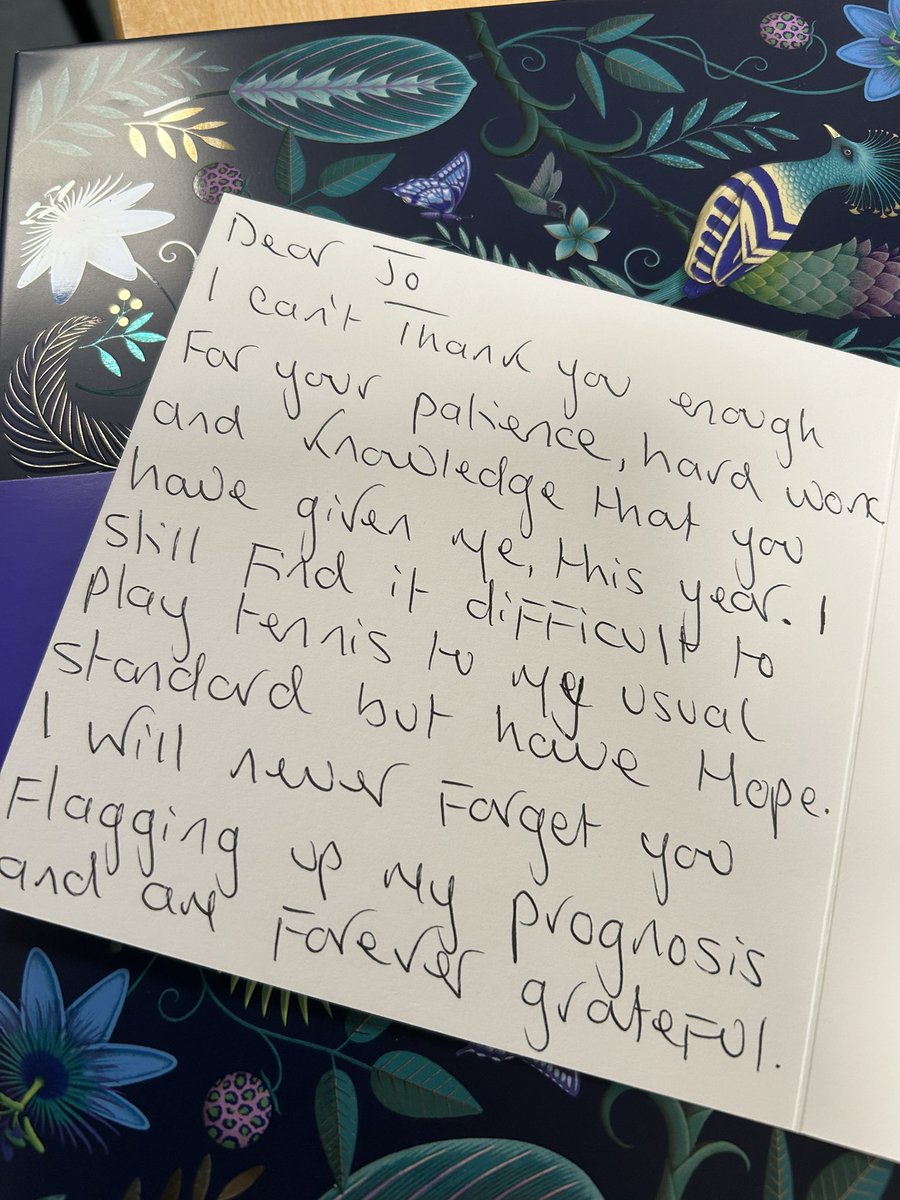 Dear Jo
I can't Thank you enough
For your patience, hard work
and knowledge that you
have given me, this year. I
still Find it difficult to
play tennis to my usual
standard but have Hope.
I will never Forget you
Flagging up my prognosis
and am Forever grateful.